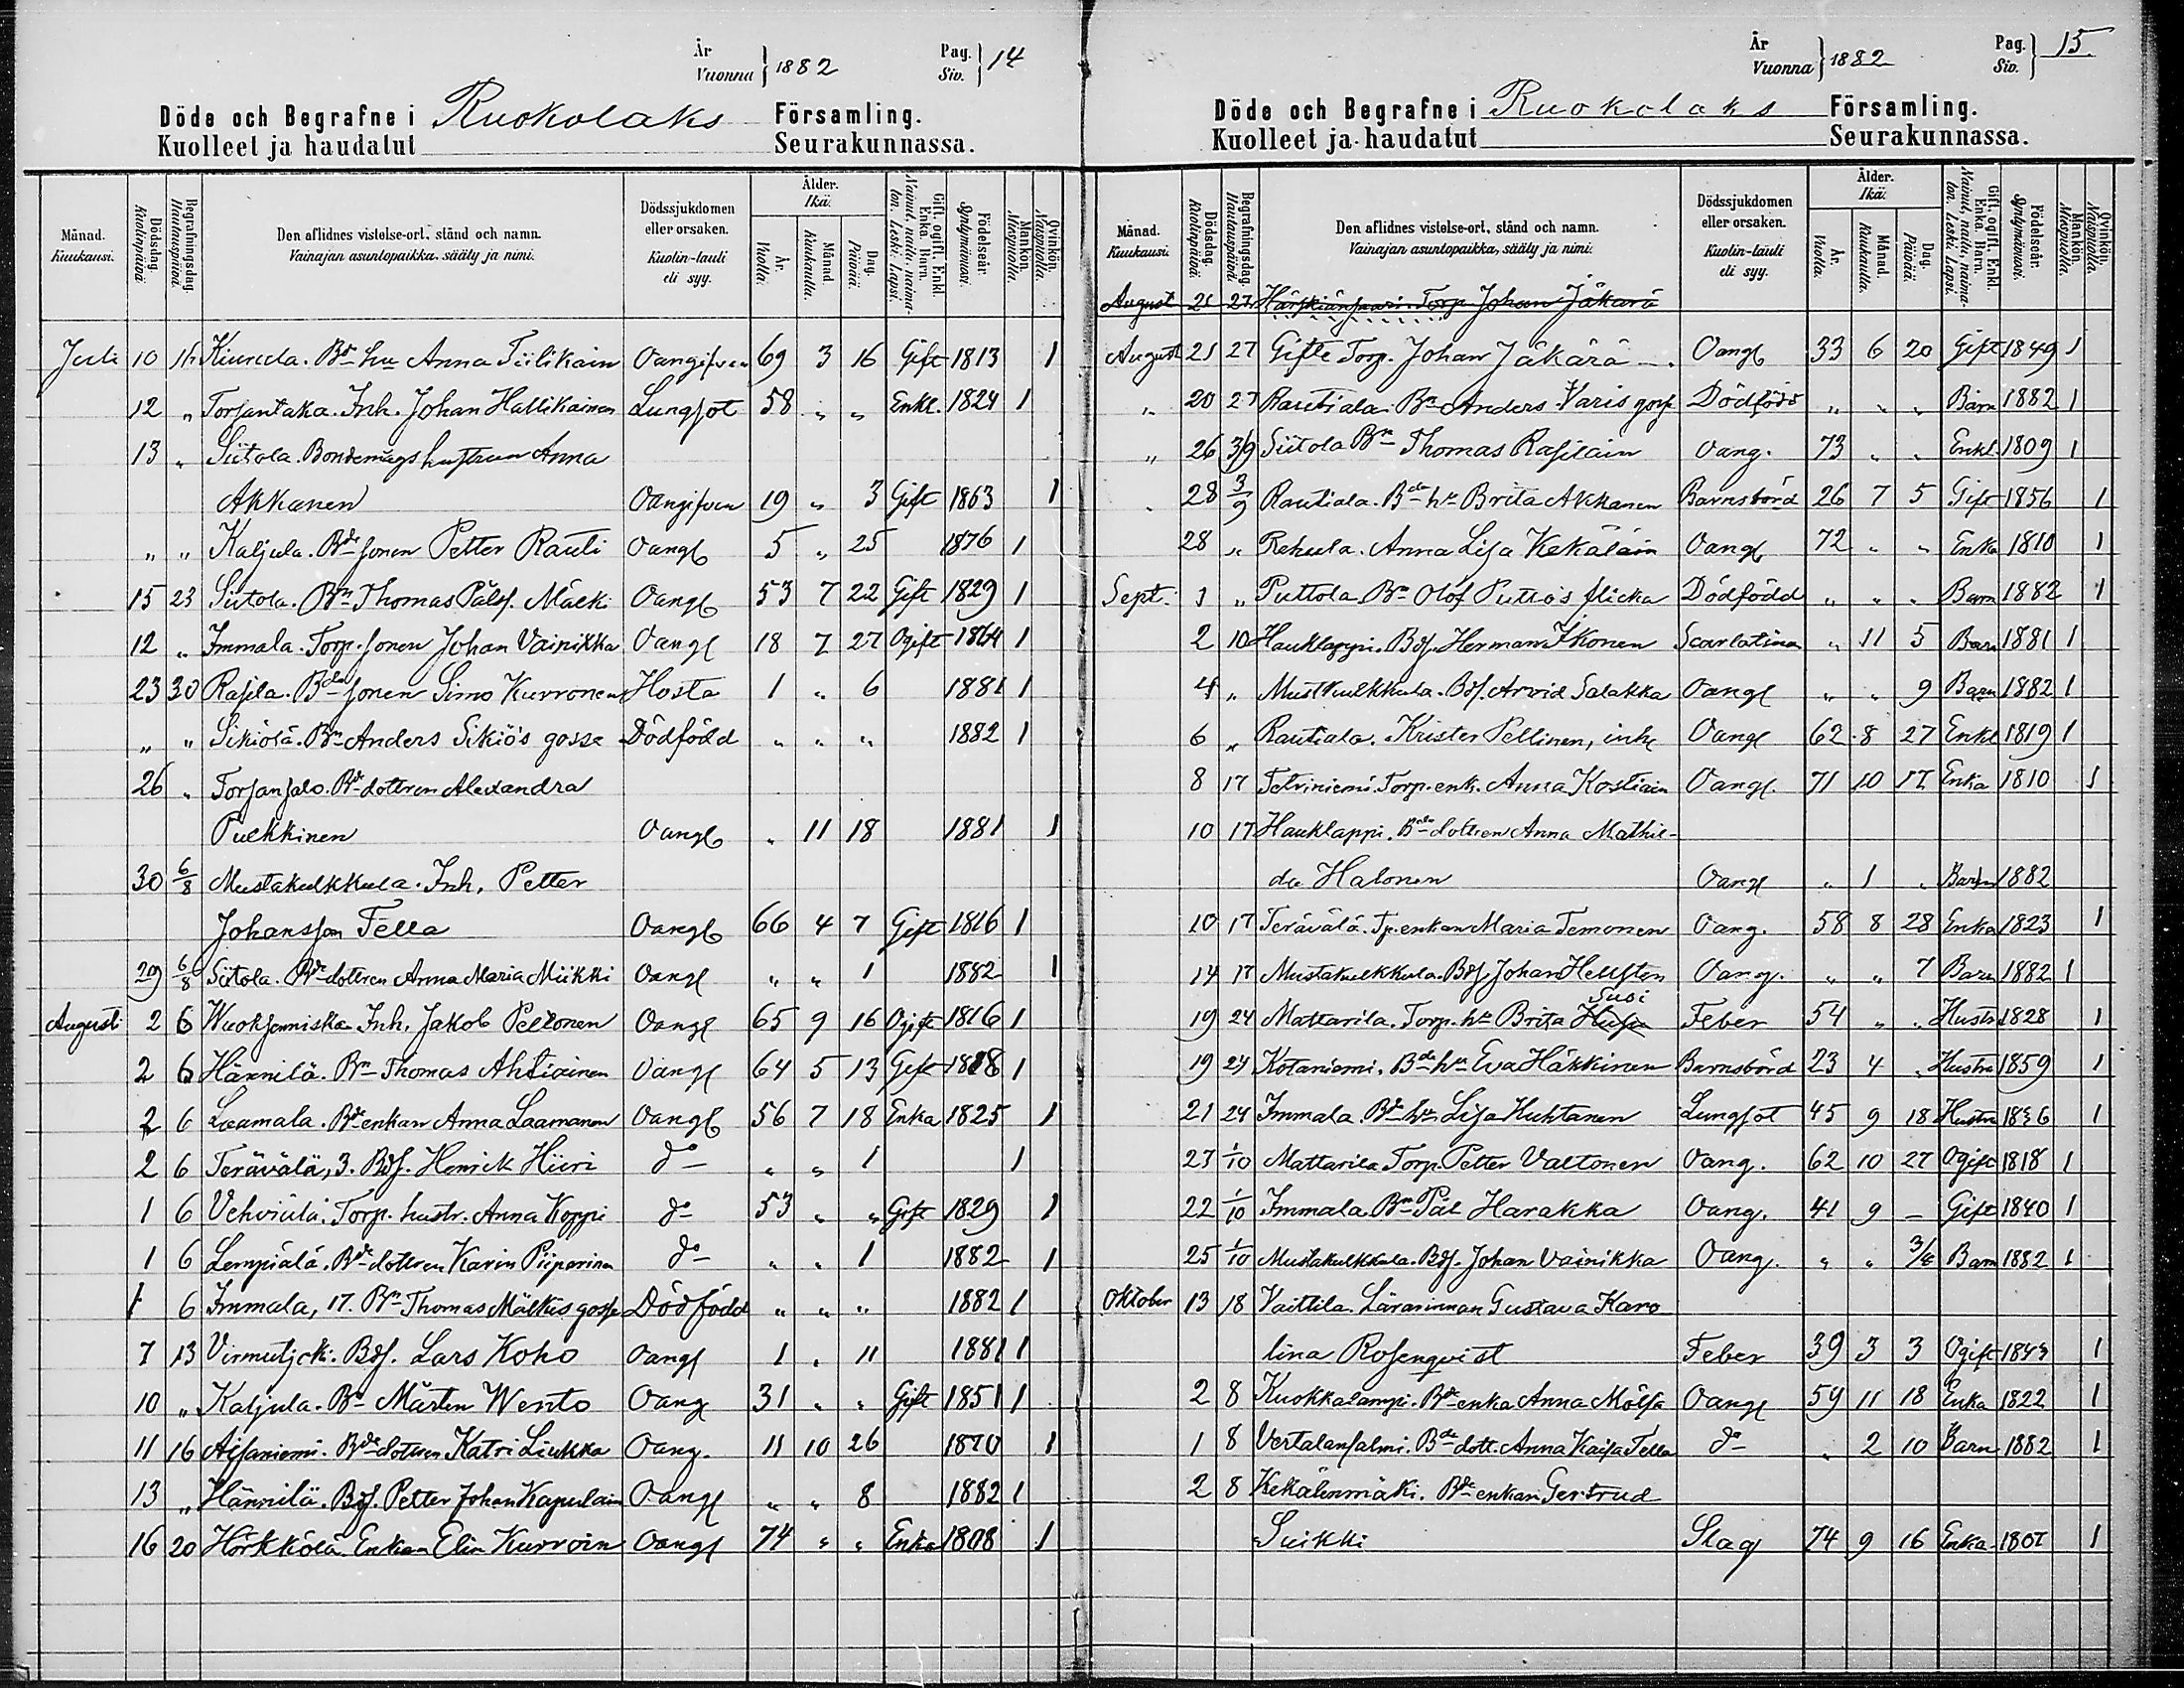 År
Vuonna } 1882 Pag.
Siv. } 14
Döde och Begrafne i Ruokolaks Församling.
Kuolleet ja haudatut Seurakunnassa.
Månad. Kuukausi. Dödsdag. Kuolinpäivä. Begrafningsdag. Hautauspäivä. Den aflidnes vistelse-ort, stånd och namn. Vainajan asuntopaikka, sääty ja nimi. Dödssjukdomen eller orsaken. Kuolin-tauti eli syy. Ålder. Ikä. År. Vuotta. Månad. Kuukautta. Dag. Päivää. Gift, ogift, Enkl. Enka. Barn. Nainut, naitu, naimaton. Leski. Lapsi. Födelseår. Syntymävuosi. Mankön. Miespuolta. Qvinkön. Naispuolta.
Juli 10 16 Kiurula. Bde hu Anna Tiilikain Oangifven 69 3 16 Gift 1813 1
12 „ Torsantaka. Inh. Johan Hallikainen Lungsot 58 „ „ Enkl. 1824 1
13 „ Siitola. Bondemågs hustrun Anna
Akkanen Oangifven 19 „ 3 Gift 1863 1
„ „ Kaljula. Bde sonen Petter Rauti Oangl 5 „ 25 1876 1
15 23 Siitola. Bn Thomas Pålss. Mälki Oangl 53 7 22 Gift 1829 1
12 „ Immala. Torp. sonen Johan Vainikka Oangl 18 7 27 Ogift 1864 1
23 30 Rasila. Bde sonen Simo Kurronen Hosta 1 „ 6 1881 1
„ „ Sikiölä. Bn Anders Sikiö's gosse Dödfödd „ „ „ 1882 1
26 „ Torsansalo. Bde dottren Alexandra
Pulkkinen Oangl „ 11 18 1881 1
30 6/8 Mustakulkkula. Inh. Petter
Johansson Tella Oangl 66 4 7 Gift 1816 1
29 6/8 Siitola. Bde dottren Anna Maria Miikki Oangl „ „ 1 1882 1
Augusti 2 6 Wuoksenniska Inh. Jakob Peltonen Oangl 65 9 16 Ogift 1816 1
2 6 Hännilä. Bn Thomas Ahtiainen Oangl 64 5 13 Gift 1818 1
2 6 Laamala. Bde enkan Anna Laamanen Oangl 56 7 18 Enka 1825 1
2 6 Terävälä, 3. Bds. Henrik Hiiri do „ „ 1 1
1 6 Vehviälä. Torp. hustr. Anna Koppi do 53 „ „ Gift 1829 1
1 6 Lempiälä. Bde dottren Karin Piiparinen do „ „ 1 1882 1
1 6 Immala, 17. Bn Thomas Mälkis gosse Dödfödd „ „ „ 1882 1
7 13 Virmutjoki. Bds. Lars Koho Oangl 1 „ 11 1881 1
10 „ Kaljula. Bn Mårten Wento Oang 31 „ „ Gift 1851 1
11 16 Äisäniemi. Bde dottren Katri Liukka Oang. 11 10 26 1870 1
13 „ Hännilä. Bds. Petter Johan Kapulain Oangl „ „ 8 1882 1
16 20 Hörkkölä. Enkan Elin Kurvoin Oangl 74 „ „ Enka 1808 1
År
Vuonna } 1882 Pag.
Siv. } 15
Döde och Begrafne i Ruokolaks Församling.
Kuolleet ja haudatut Seurakunnassa.
Månad. Kuukausi. Dödsdag. Kuolinpäivä. Begrafningsdag. Hautauspäivä. Den aflidnes vistelse-ort, stånd och namn. Vainajan asuntopaikka, sääty ja nimi. Dödssjukdomen eller orsaken. Kuolin-tauti eli syy. Ålder. Ikä. År. Vuotta. Månad. Kuukautta. Dag. Päivää. Gift, ogift, Enkl. Enka. Barn. Nainut, naitu, naimaton. Leski. Lapsi. Födelseår. Syntymävuosi. Mankön. Miespuolta. Qvinkön. Naispuolta.
August 21 27 Härskiänsaari Torp. Johan Jäkärä
August 21 27 Gifte Torp. Johan Jäkärä Oangl 33 6 20 Gift 1849 1
„ 20 27 Rautiala. Bn Anders Varis gosse Dödfödd „ „ „ Barn 1882 1
„ 26 3/9 Siitola Bn Thomas Rasilain Oang. 73 „ „ Enkl. 1809 1
„ 28 3/9 Rautiala. Bde hu Brita Akkanen Barnsbörd 26 7 5 Gift 1856 1
28 „ Rehula. Anna Lisa Kekäläin Oangl 72 „ „ Enka 1810 1
Sept. 1 „ Puttola Bn Olof Putto's flicka Dödfödd „ „ „ Barn 1882 1
2 10 Hauklappi. Bds. Herman Ikonen Scarlatina „ 11 5 Barn 1881 1
4 „ Mustkulkkula. Bds. Arvid Salakka Oangl „ „ 9 Barn 1882 1
6 „ Rautiala. Krister Pellinen, inhs Oangl 62 8 27 Enkl 1819 1
8 17 Tetriniemi. Torp. enk. Anna Kostiain Oangl. 71 10 17 Enka 1810 1
10 17 Hauklappi. Bde dottren Anna Mathil-
da Halonen Oangl „ 1 „ Barn 1882
10 17 Terävälä. Tp. enkan Maria Temonen Oang. 58 8 28 Enka 1823 1
14 17 Mustakulkkula. Bds. Johan Hellsten Oang. „ „ 7 Barn 1882 1
19 24 Mattarila. Torp. hu Brita Susi Feber 54 „ „ Hustru 1828 1
19 24 Kotaniemi. Bde hu Eva Häkkinen Barnsbörd 23 4 „ Hustru 1859 1
21 24 Immala. Bde hu Lisa Kuhtanen Lungsot 45 9 18 Hustru 1836 1
27 1/10 Mattarila Torp. Petter Valtonen Oang. 62 10 27 Ogift 1818 1
22 1/10 Immala. Bn Pål Harakka Oang. 41 9 – Gift 1840 1
25 1/10 Mustakulkkula. Bds. Johan Vainikka Oang. „ „ 3/4 Barn 1882 1
Oktober 13 18 Vaittila. Lärarinnan Gustava Karo
lina Rosenqvist Feber 39 3 3 Ogift 1843 1
2 8 Kuokkalampi. Bde enka Anna Mölsä Oangl 59 11 18 Enka 1822 1
1 8 Vertalansalmi. Bde dott. Anna Kaisa Tella do „ 2 10 Barn 1882 1
2 8 Kekäleenmäki. Bde enkan Gertrud
Suikki Slag 74 9 16 Enka 1807 1